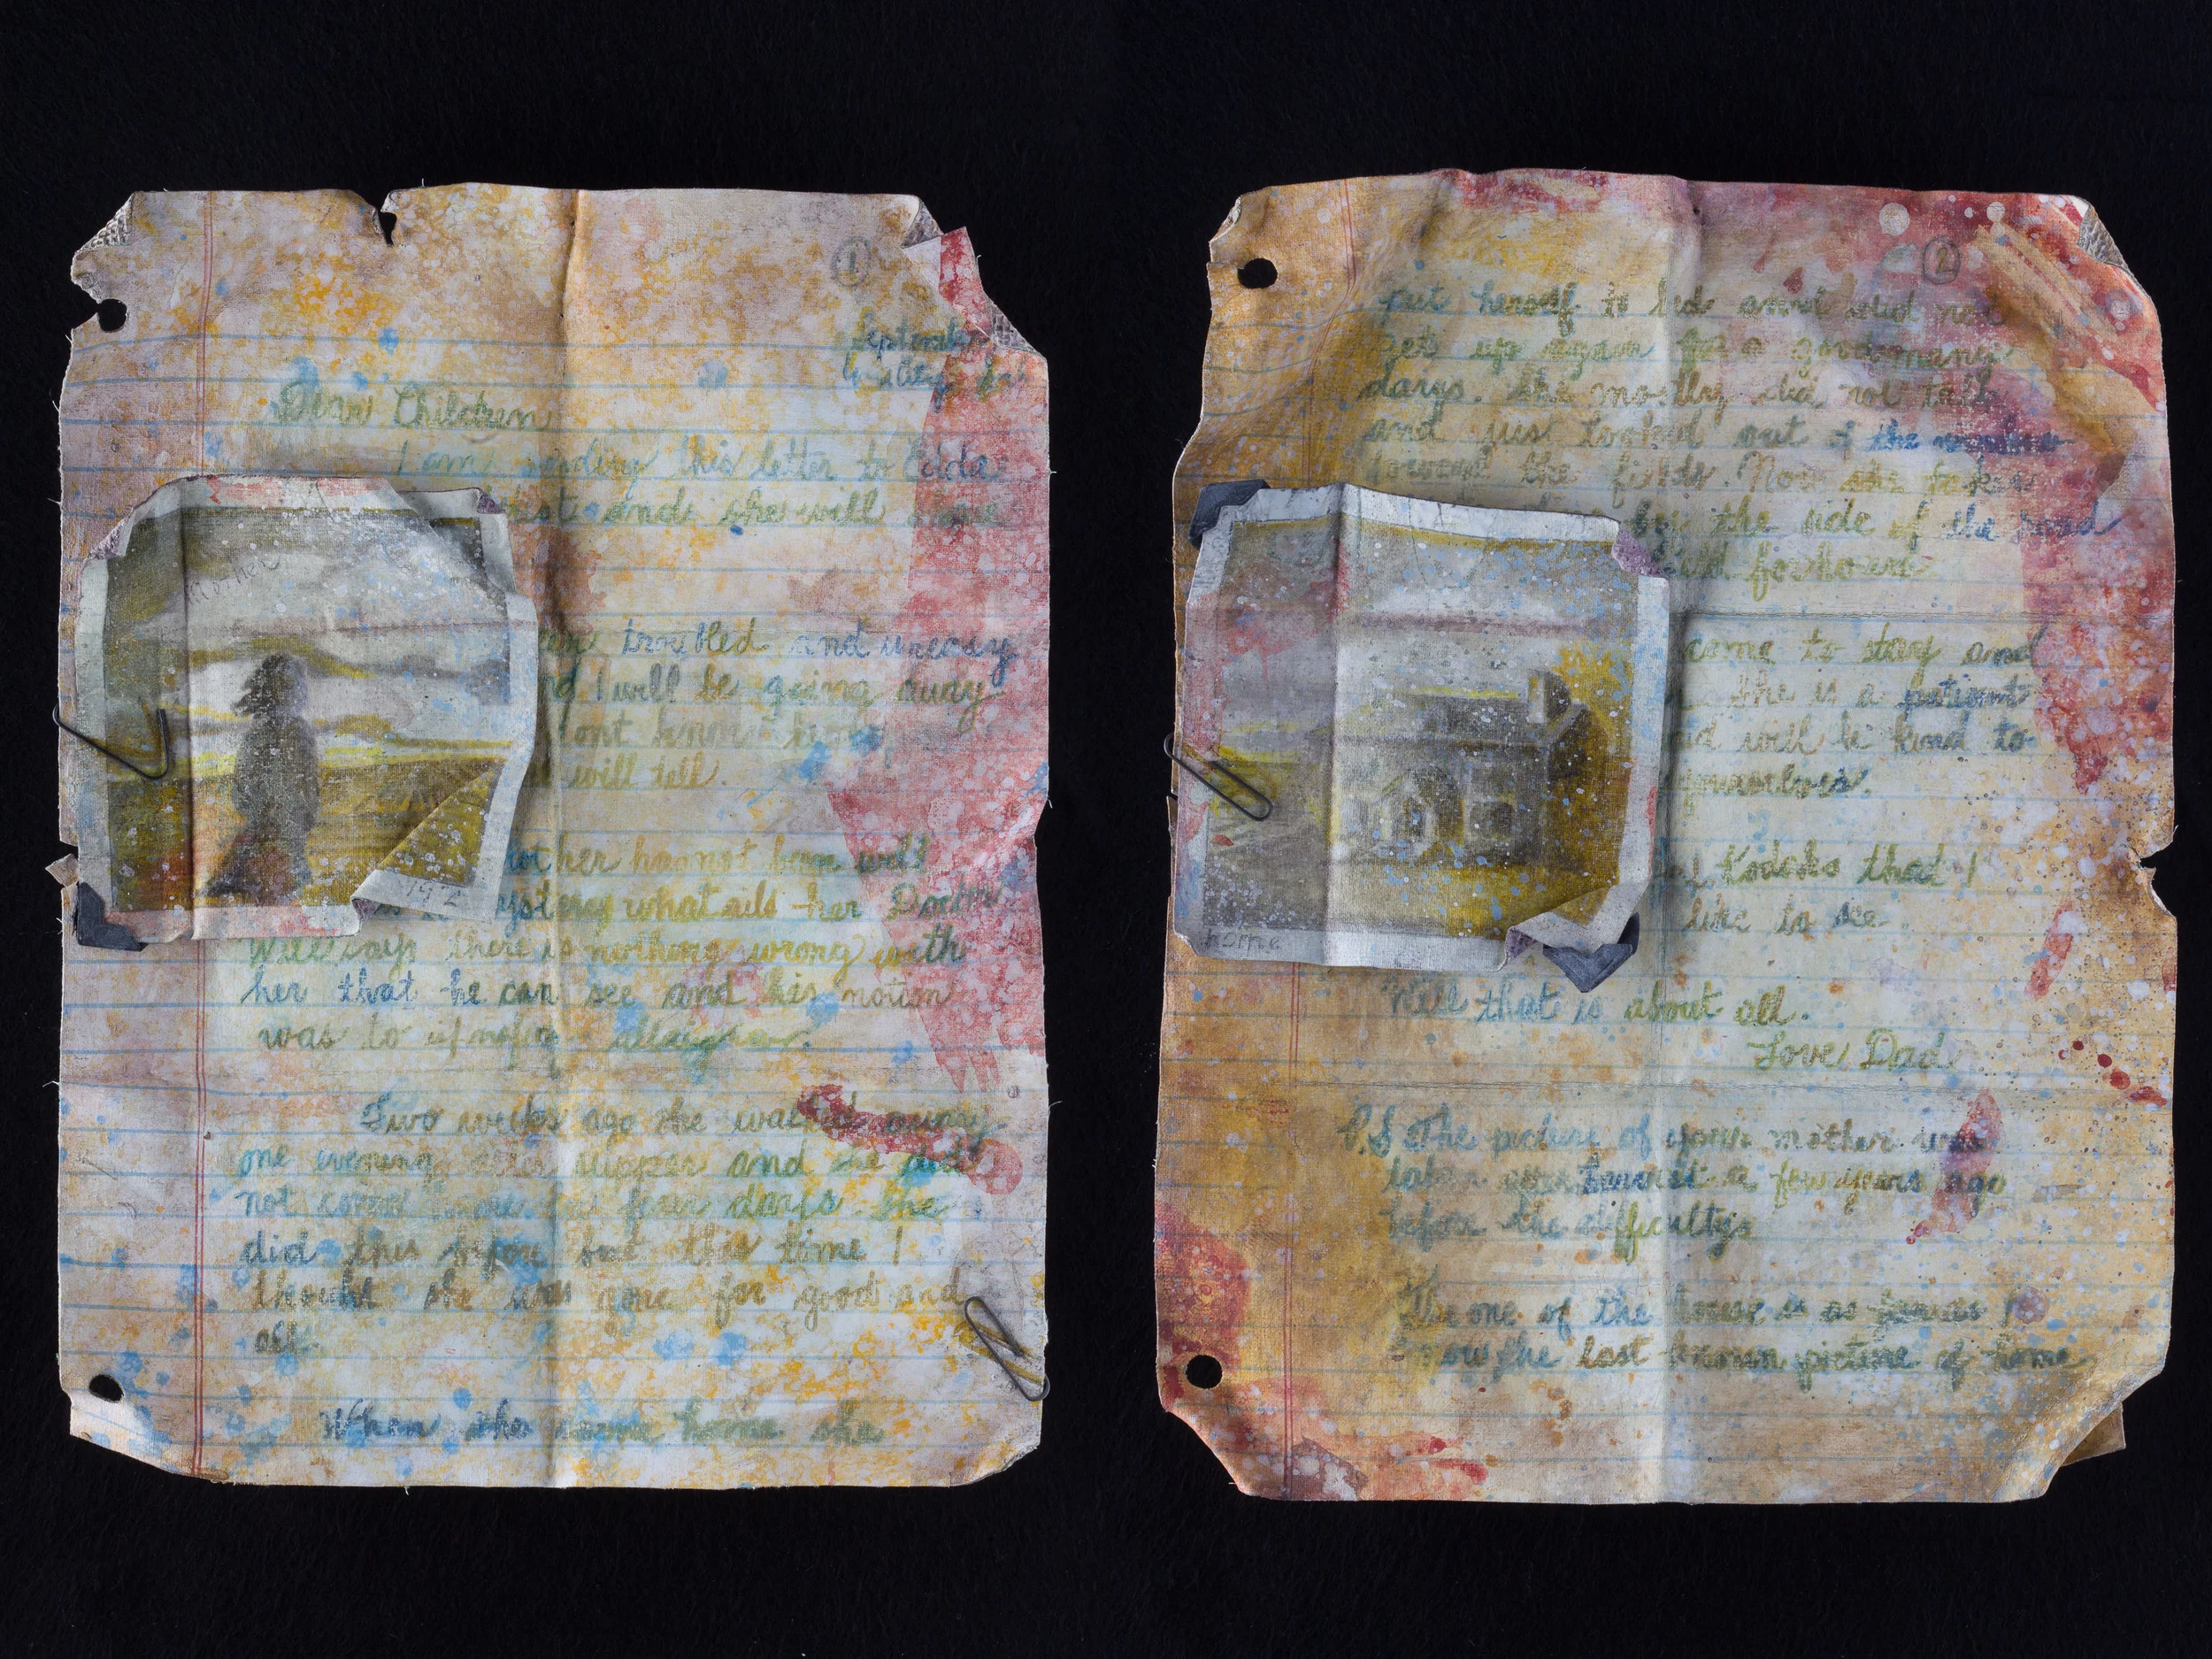 1
September
Dear Children
I am sending this letter to Edda
first and she will
mother
troubled and uneasy
I will be going away
dont know how
will tell.
Mother has not been well
mystery what ails her Doctor
192
Will says there is nothing wrong with
her that he can see and his notion
was to
Two weeks ago she walked away
one evening after supper and she did
not come home for four days. She
did this before but this time I
thought she was gone for good and
all.
When she came home she
2
put herself to bed and did not
get up again for a good many
days. She mostly did not talk
and just looked out of the window
toward the fields. Now she takes
by the side of the road
for hours
came to stay and
She is a patient
and will be kind to
yourselves.
Kodaks that I
like to see.
home
Well that is about all.
Love Dad
P.S The picture of your mother was
taken after harvest a few years ago
before the difficulty.
The one of the house is as far as I
know the last known picture of home